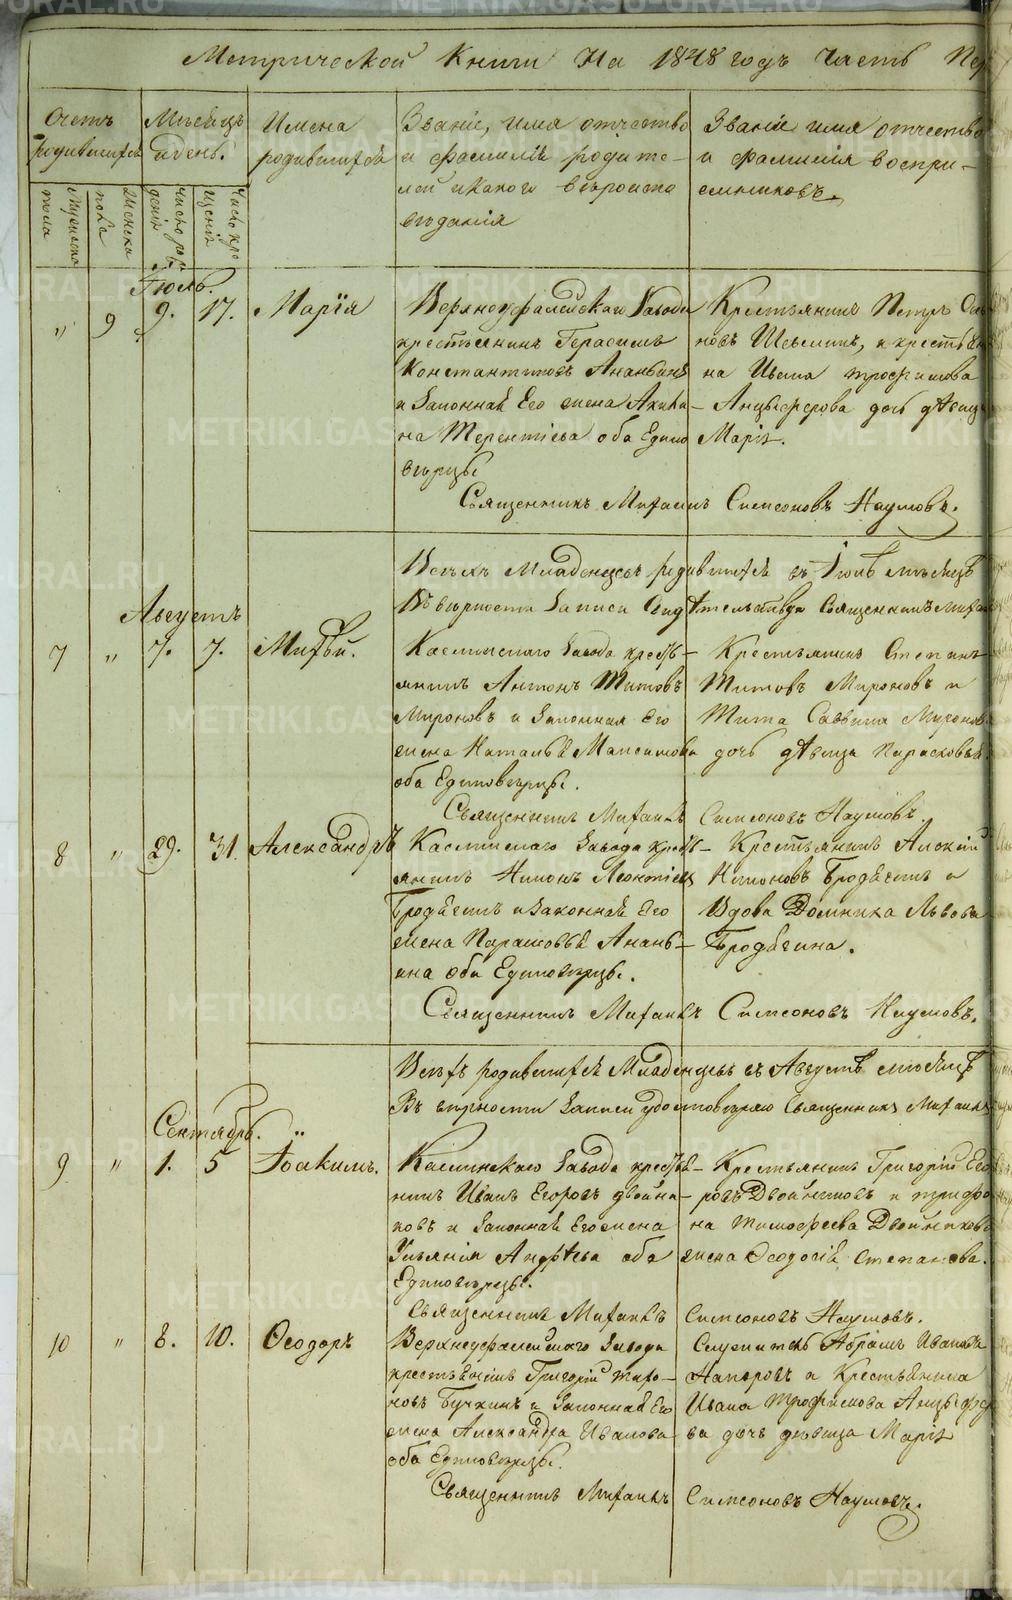 Метрической Книги На 1848 годъ Часть Пер
Счетъ родившихся
Мѣсяцъ и день.
Имена родившихся
Званіе, имя отчество и фамилія родителей и какого вѣроисповѣданія
Званіе имя отчество и фамилія воспріемниковъ.
мужеска пола
женска пола
число рожденія
число крещенія
Іюль.
" 9 9. 17. Марія
Верхноуфалейскаго Завода
крестьянинъ Герасимъ
Константиновъ Ананьинъ
и Законная Его жена Акили-
на Терентіева оба Едино
вѣрцы
Крестьянинъ Петръ
новъ и крестьяни
на Ивана Трофимова
Анцыферова дочь дѣвица
Марія.
Священникъ Михаилъ Симеоновъ Наумовъ.
Всѣхъ Младенцевъ родившихся въ Іюлѣ мѣсяцѣ
Въ вѣрности записи Свидѣтельствую Священникъ Михаи
Августъ
7 " 7. 7. Матвѣй.
Каслинскаго Завода кресть-
янинъ Антонъ Титовъ
Мироновъ и Законная Его
жена Наталья Максимова
оба Единовѣрцы.
Крестьянинъ Степанъ
Титовъ Мироновъ и
Тита Саввина Миронов
дочь дѣвица Парасковья
Священникъ Михаилъ Симеоновъ Наумовъ.
8 " 29. 31. Александръ
Каслинскаго Завода кресть-
янинъ Никонъ Леонтіевъ
Бродягинъ и Законная Его
жена Парасковья Анань-
ина оба Единовѣрцы.
Крестьянинъ Алексѣй
Никоновъ Бродягинъ и
Вдова Домника Львова
Бродягина.
Священникъ Михаилъ Симеоновъ Наумовъ.
Всѣхъ родившихся Младенцевъ въ Августѣ мѣсяцѣ
Въ вѣрности Записи удостовѣряю Священникъ Михаилъ
Сентябрь.
9 " 1. 5 Іоакимъ.
Каслинскаго Завода крестья-
нинъ Иванъ Егоровъ Двойни-
ковъ и Законная Его жена
Ульянія Андрѣева оба
Единовѣрцы.
Крестьянинъ Григорій Его
ровъ Двойниковъ и Трифо
на Тимофеева Двойникова
жена Ѳеодосія Степанова.
Священникъ Михаилъ Симеоновъ Наумовъ.
10 " 8. 10. Ѳеодоръ
Верхнеуфалейскаго Завода
крестьянинъ Григорій Тихо-
новъ Бучкинъ и Законная Его
жена Александра Иванова
оба Единовѣрцы.
Служитель Абрамъ Ивановъ
Напоровъ и Крестьянина
Ивана Трофимова Анцыферо
ва дочь дѣвица Марія
Священникъ Михаилъ Симеоновъ Наумовъ.
METRIKI.GASO-URAL.RU